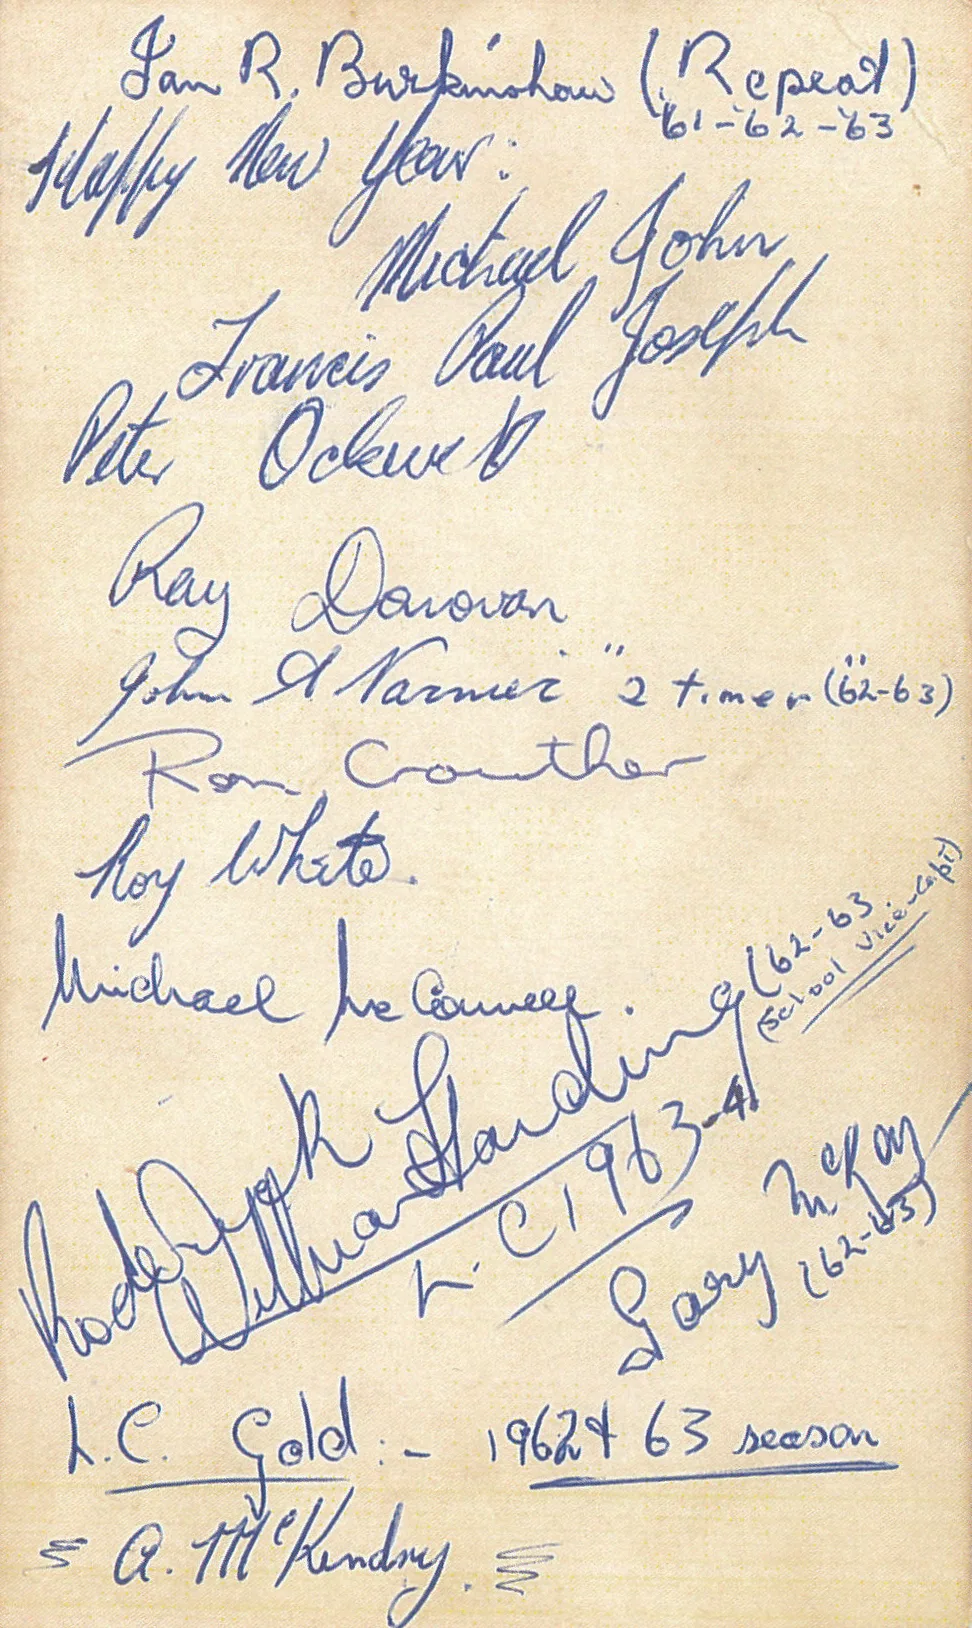 Ian R. Burkinshaw (Repeat)
'61-'62-'63
Happy New Year:
Michael John
Francis Paul Joseph
Peter Ockwell
Ray Donovan
John A "2 timer" ('62-63)
Ron Crowther
Roy White.
Michael McConnell.
William Harding (62-63
(School Vice-Capt)
L.C 1963-4
Gary McKay
(62-63)
L.C. Gold:- 1962 & 63 season
A. McKendry.